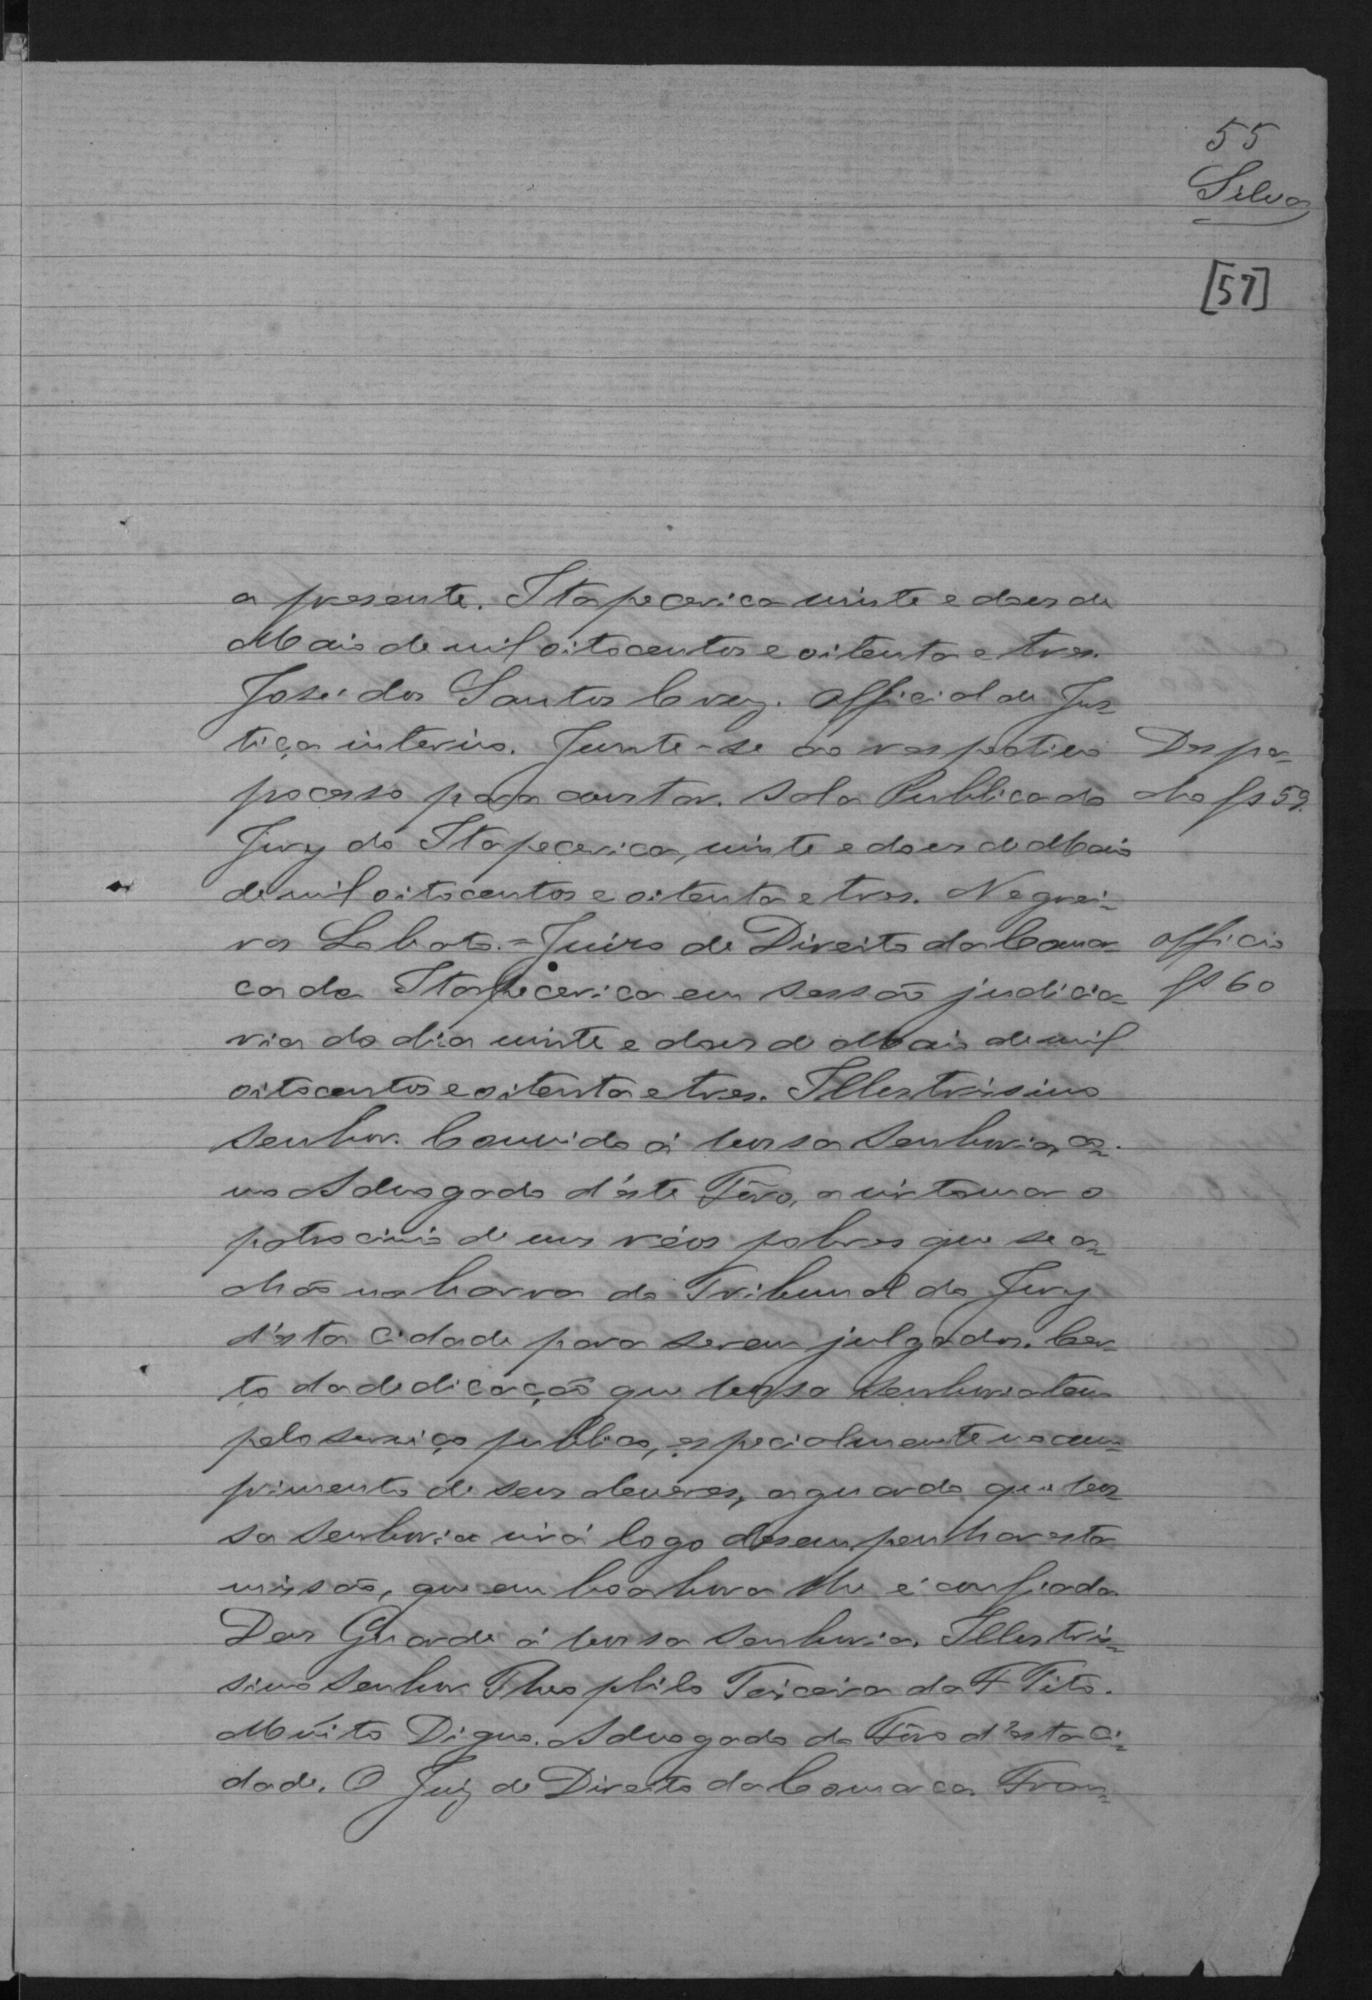 55
Silva
[57]
a presente. Itapecerica vinte e dous de
Maio de mil oitocentos e oitenta e tres.
José dos Santos Cruz. Official de Jus-
tiça interino. Junte-se ao respectivo
Despa-
processo para constar. Sala Publica do
cho fs 59.
Jury do Itapecerica, vinte e dous de Maio
de mil oitocentos e oitenta e tres. Negrei-
ros Lobato. = Juizo de Direito da Comar-
officio
ca da Itapecerica em sessão judicia-
fs 60
ria do dia vinte e dous de Maio de mil
oitocentos e oitenta e tres. Illustrissimo
Senhor. Convido á Vossa Senhoria, co-
mo Advogado d'este Fôro, a vir tomar o
patrocinio de uns réos pobres que se a-
chão na barra do Tribunal do Jury
d'esta Cidade para serem julgados. Cer-
to da dedicação que Vossa Senhoria tem
pelo serviço publico, especialmente no cum-
primento de seus deveres, aguardo que Vos-
sa Senhoria virá logo desempenhar esta
missão, que em boa hora lhe é confiada
Deos Guarde á Vossa Senhoria. Illustris-
simo Senhor Theophilo Teixeira da F Tito.
Muito Digno. Advogado do Fôro d'esta Ci-
dade. O Juiz de Direito da Comarca Fran-